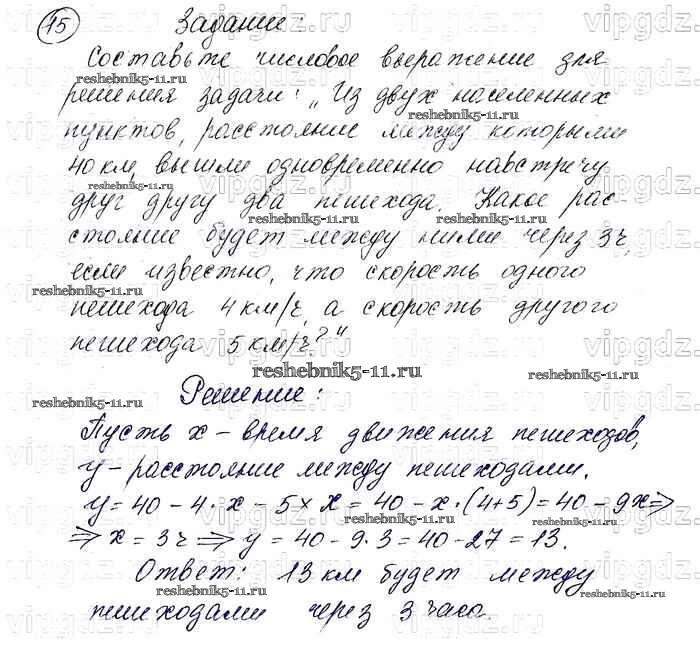 15 Задание:
Составьте числовое выражение для
решения задачи: „Из двух населенных
пунктов, расстояние между которыми
40 км, вышли одновременно навстречу
друг другу два пешехода. Какое рас-
стояние будет между ними через 3ч,
если известно, что скорость одного
пешехода 4 км/ч, а скорость другого
пешехода 5 км/ч?"
Решение:
Пусть x - время движения пешеходов,
y - расстояние между пешеходами.
y = 40 - 4·x - 5×x = 40 - x·(4+5) = 40 - 9x ⇒
⇒ x = 3ч ⇒ y = 40 - 9·3 = 40 - 27 = 13.
Ответ: 13 км будет между
пешеходами через 3 часа.
reshebnik5-11.ru
vipgdz.ru